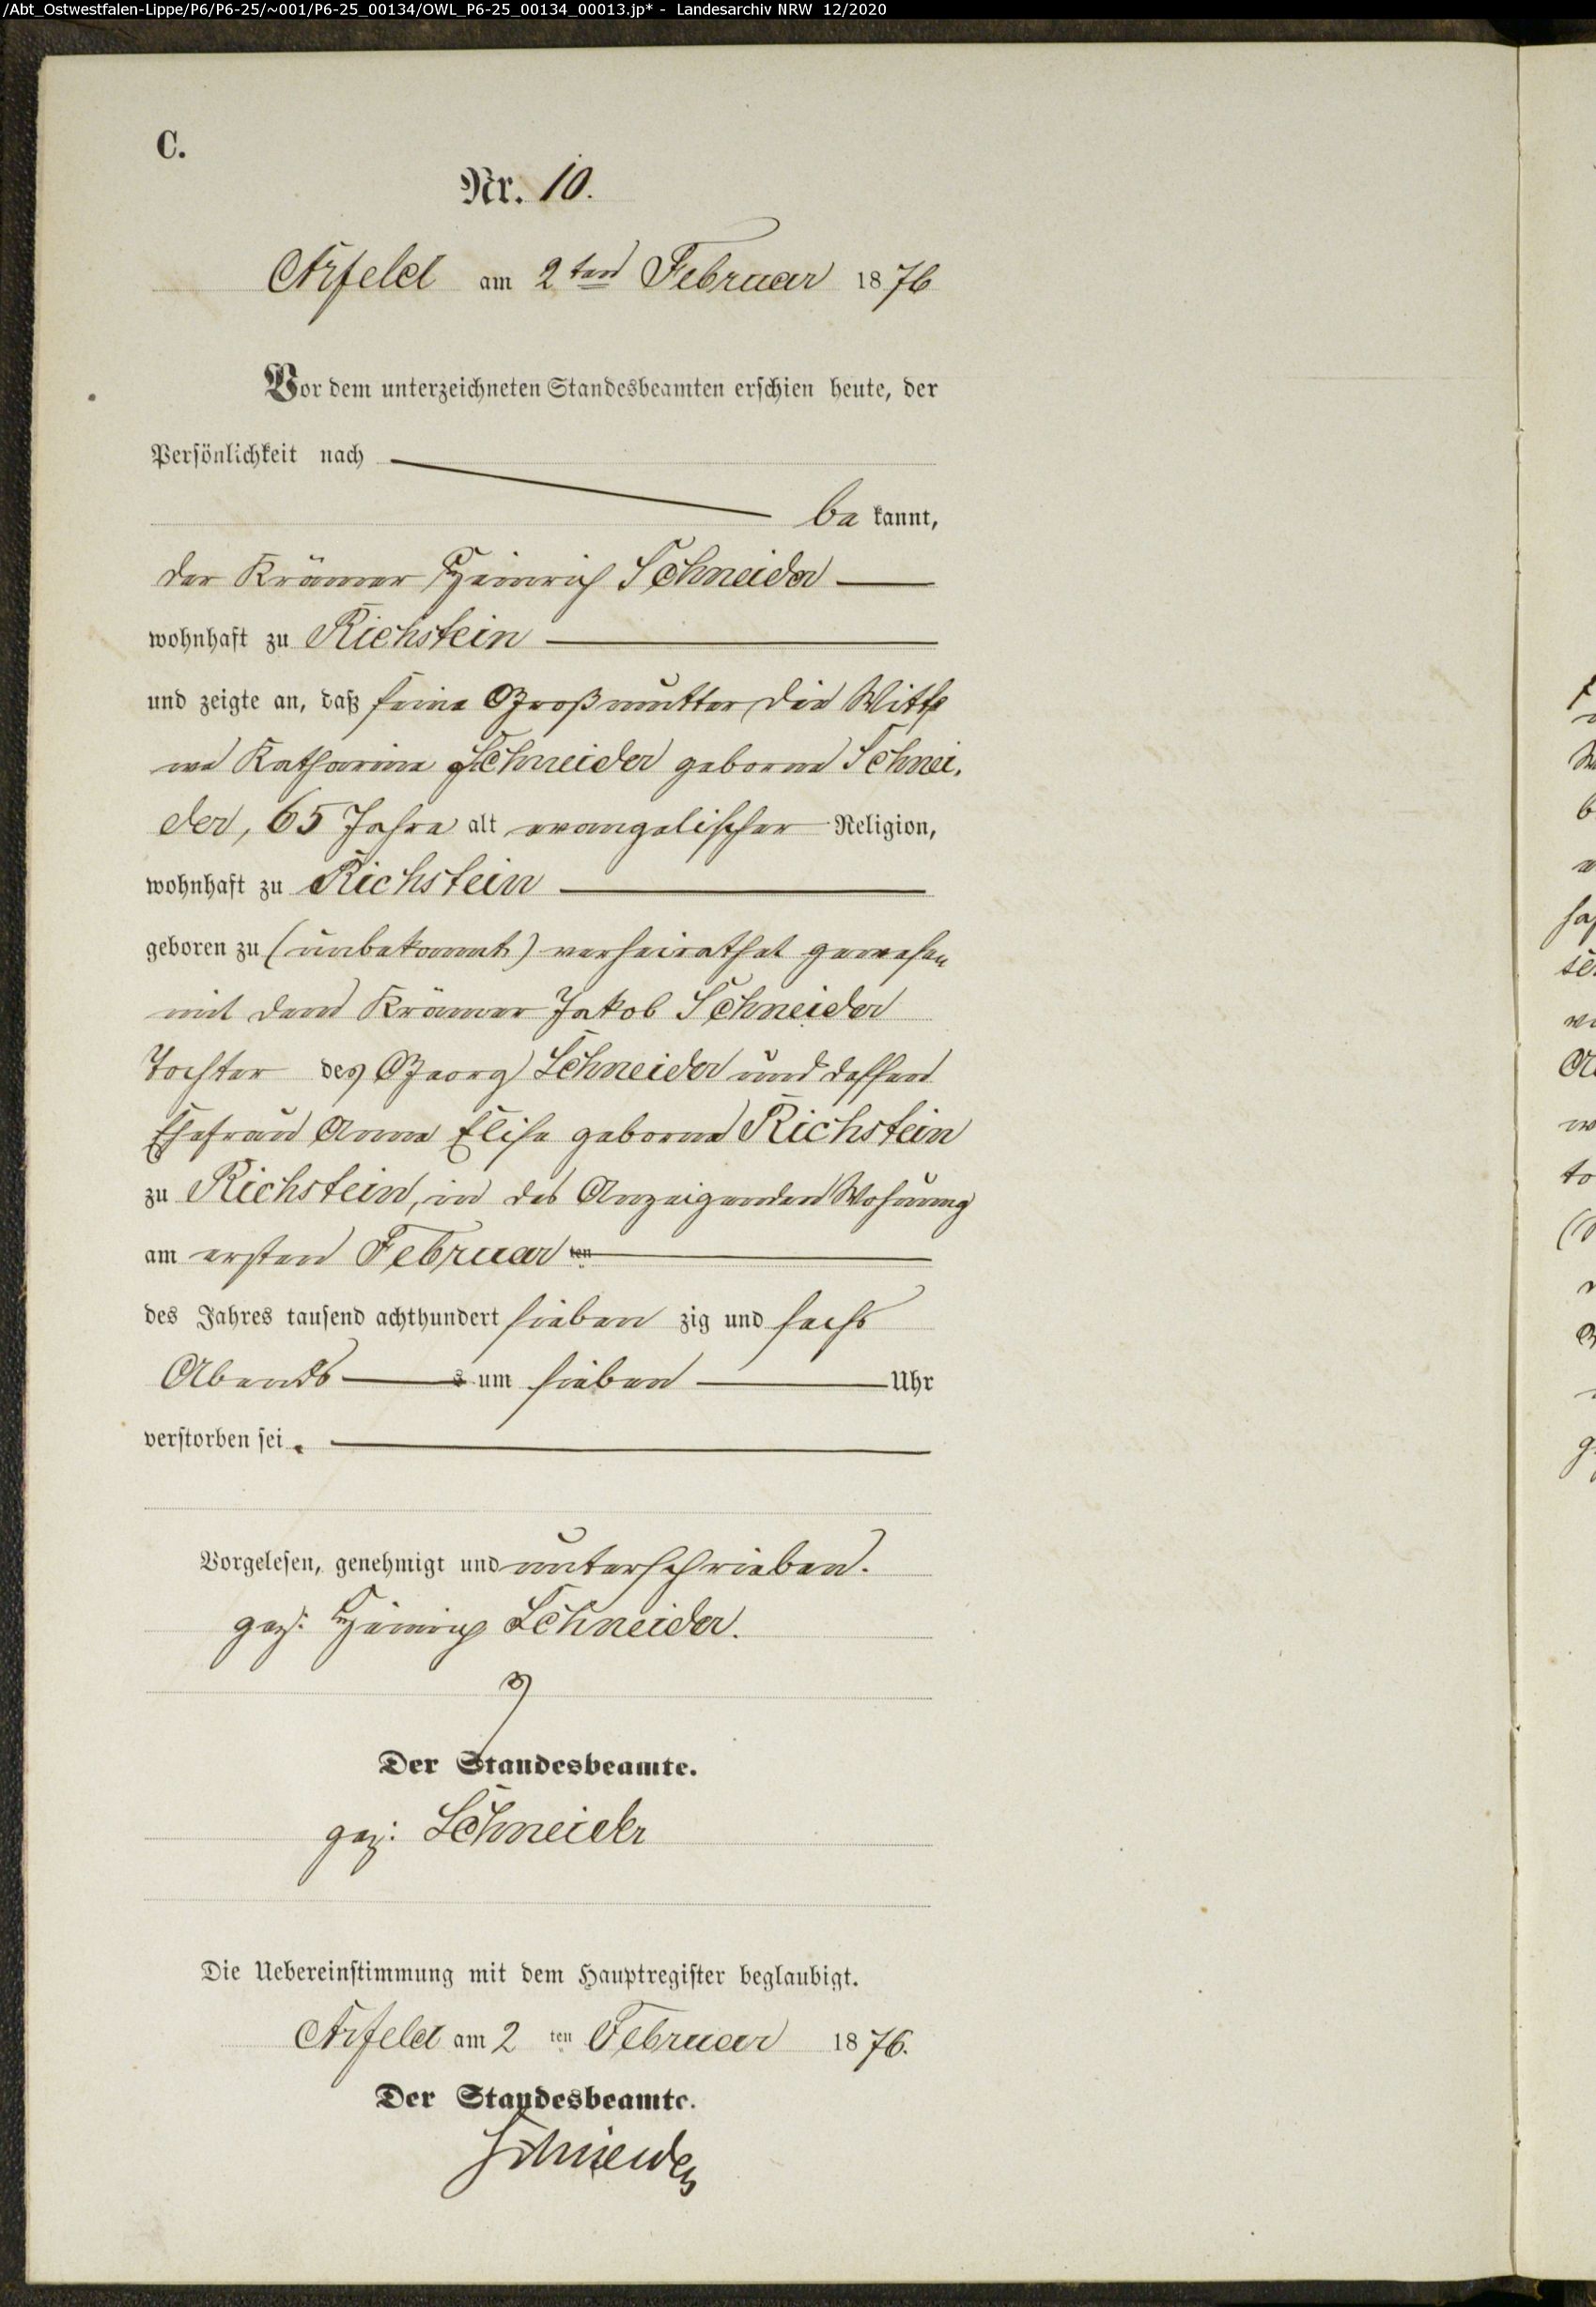 /Abt_Ostwestfalen-Lippe/P6/P6-25/~001/P6-25_00134/OWL_P6-25_00134_00013.jp* - Landesarchiv NRW 12/2020
C.
Nr. 10.
Arfeld am 2ten Februar 1876
Vor dem unterzeichneten Standesbeamten erschien heute, der
Persönlichkeit nach
be kannt,
der Krämer Heinrich Schneider
wohnhaft zu Richstein
und zeigte an, daß seine Großmutter, die Witt
we Katharine Schneider geborne Schnei.
der, 65 Jahre alt evangelischer Religion,
wohnhaft zu Richstein
geboren zu (unbekannt) verheirathet gewesen
mit dem Krämer Jakob Schneider
Tochter des Georg Schneider und dessen
Ehefrau Anna Elise geborne Richstein
zu Richstein, in des Anzeigenden Wohnung
am ersten Februar ten
des Jahres tausend achthundert sieben zig und sechs
Abends s um sieben Uhr
verstorben sei.
Vorgelesen, genehmigt und unterschrieben.
gez: Heinrich Schneider.
Der Standesbeamte.
gez: Schneider
Die Uebereinstimmung mit dem Hauptregister beglaubigt.
Arfeld am 2 ten Februar 1876.
Der Standesbeamte.
Schneider